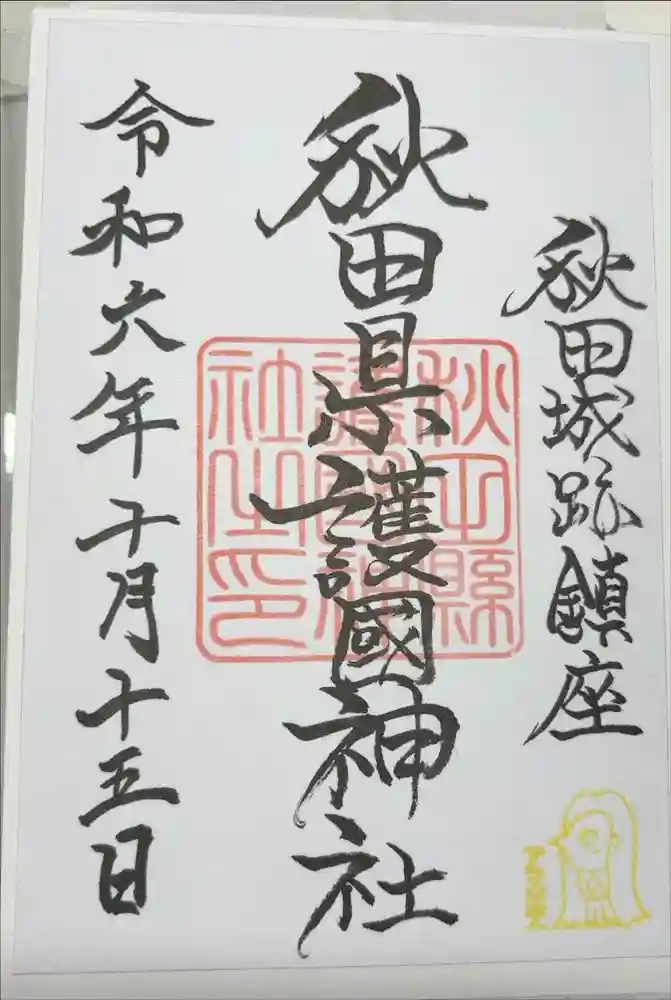 秋田城跡鎮座
秋田県護國神社
秋田縣護國神社之印
令和六年十月十五日